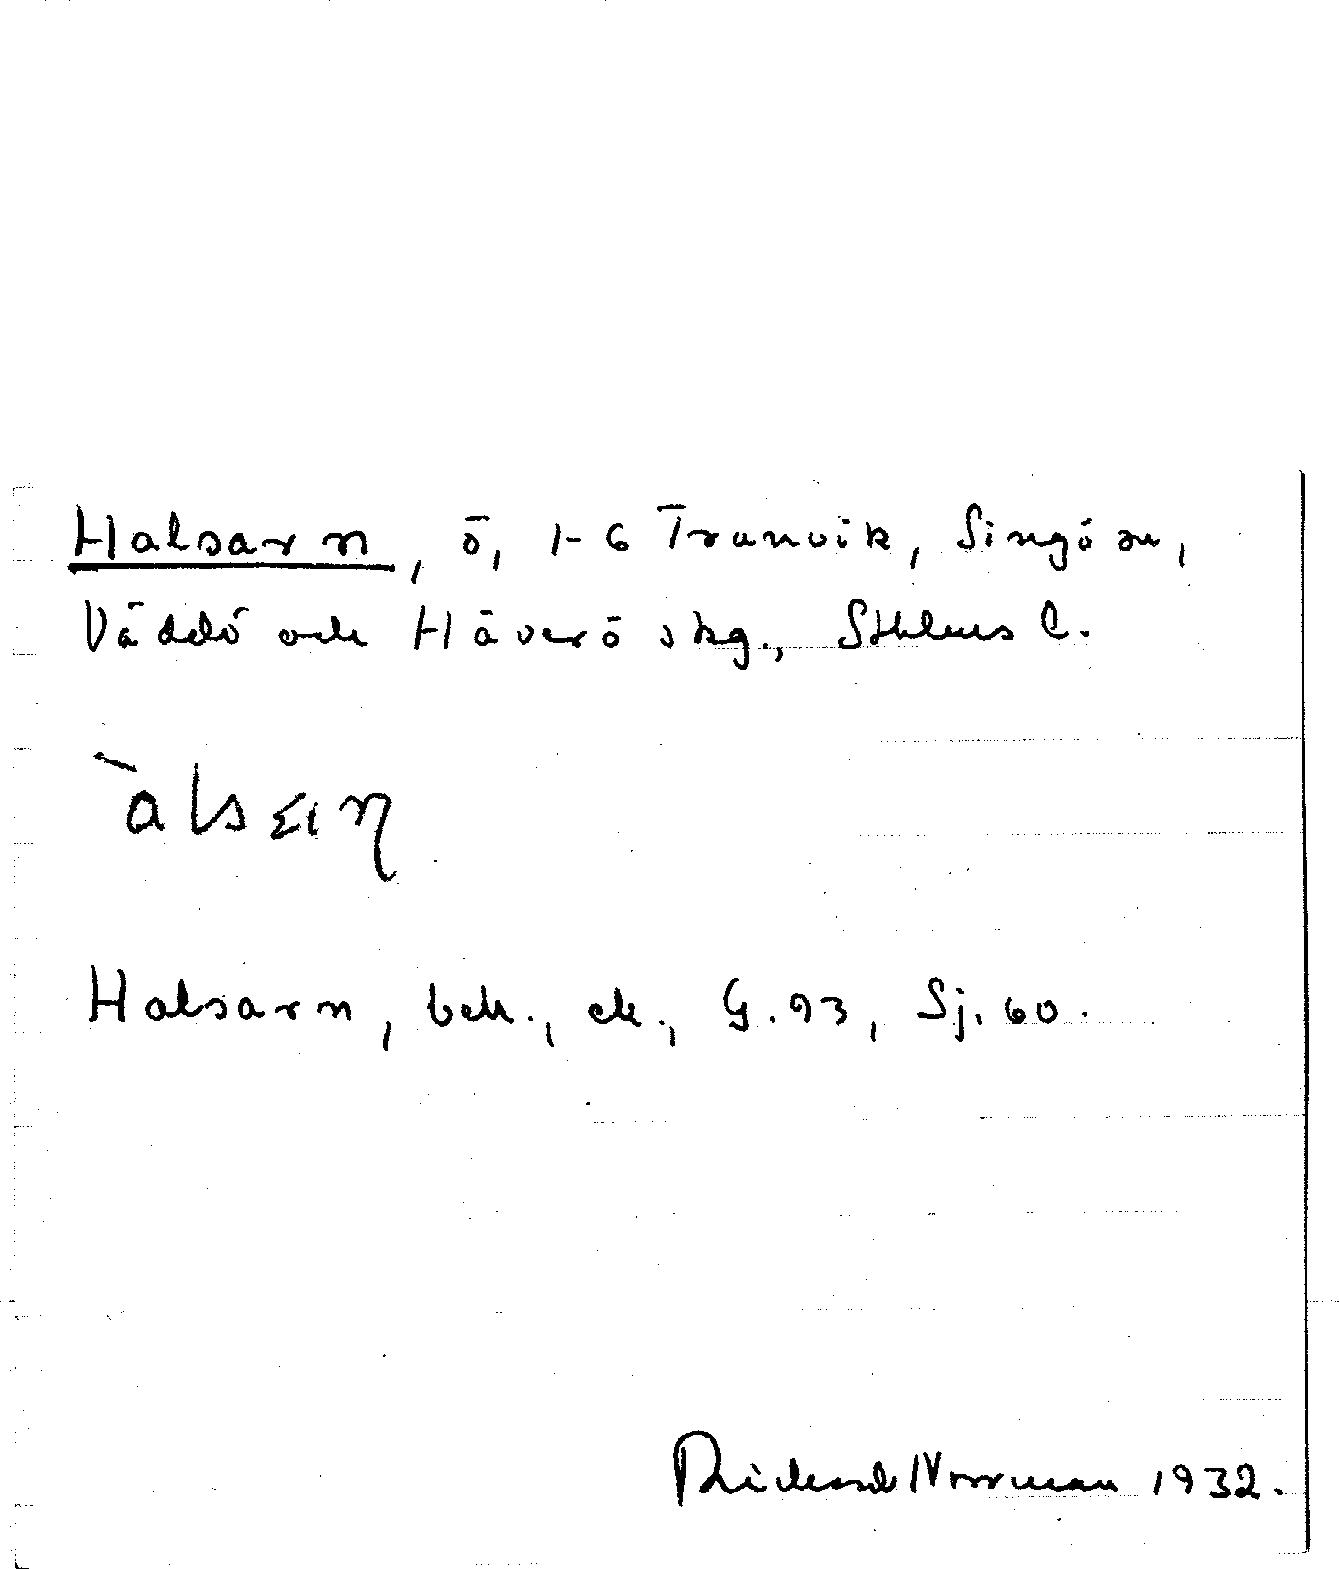 Halsarn, ö, 1-6 Tranvik, Singö sn,
Väddö och Häverö skg., Sthlms l.
Halsarn, beb., ek., G. 93, Sj. 60.
Rickard Norrman 1932.